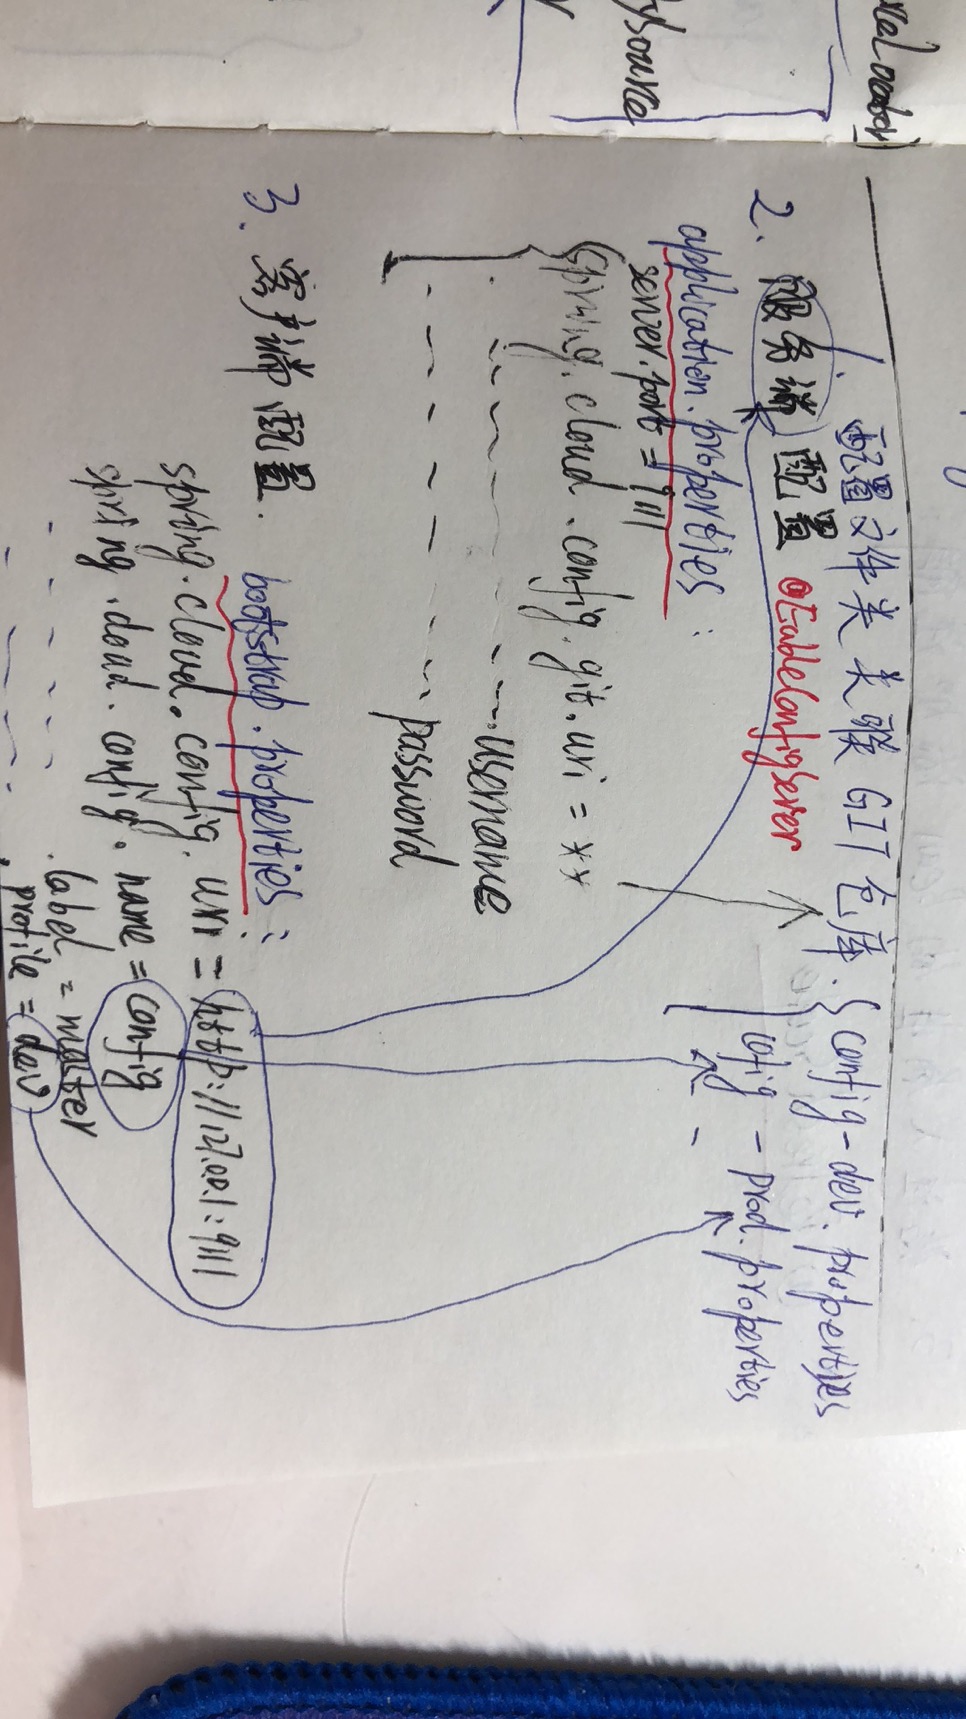 ySource
1. 配置文件关联 GIT 仓库. { config-dev.properties
cofig - prod.properties
2. 服务端 配置 @EableConfigServer
application.properties :
server.port = 9111
spring.cloud.config.git.uri = **
username
password
3. 客户端配置.
bootstrap.properties :
spring.cloud.config.uri = http://127.0.0.1:9111
spring.cloud.config.name = config
label = master
profile = dev